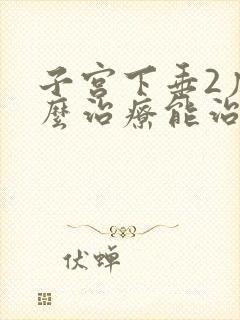 子宫下垂2
麼治療能治
伏蝉